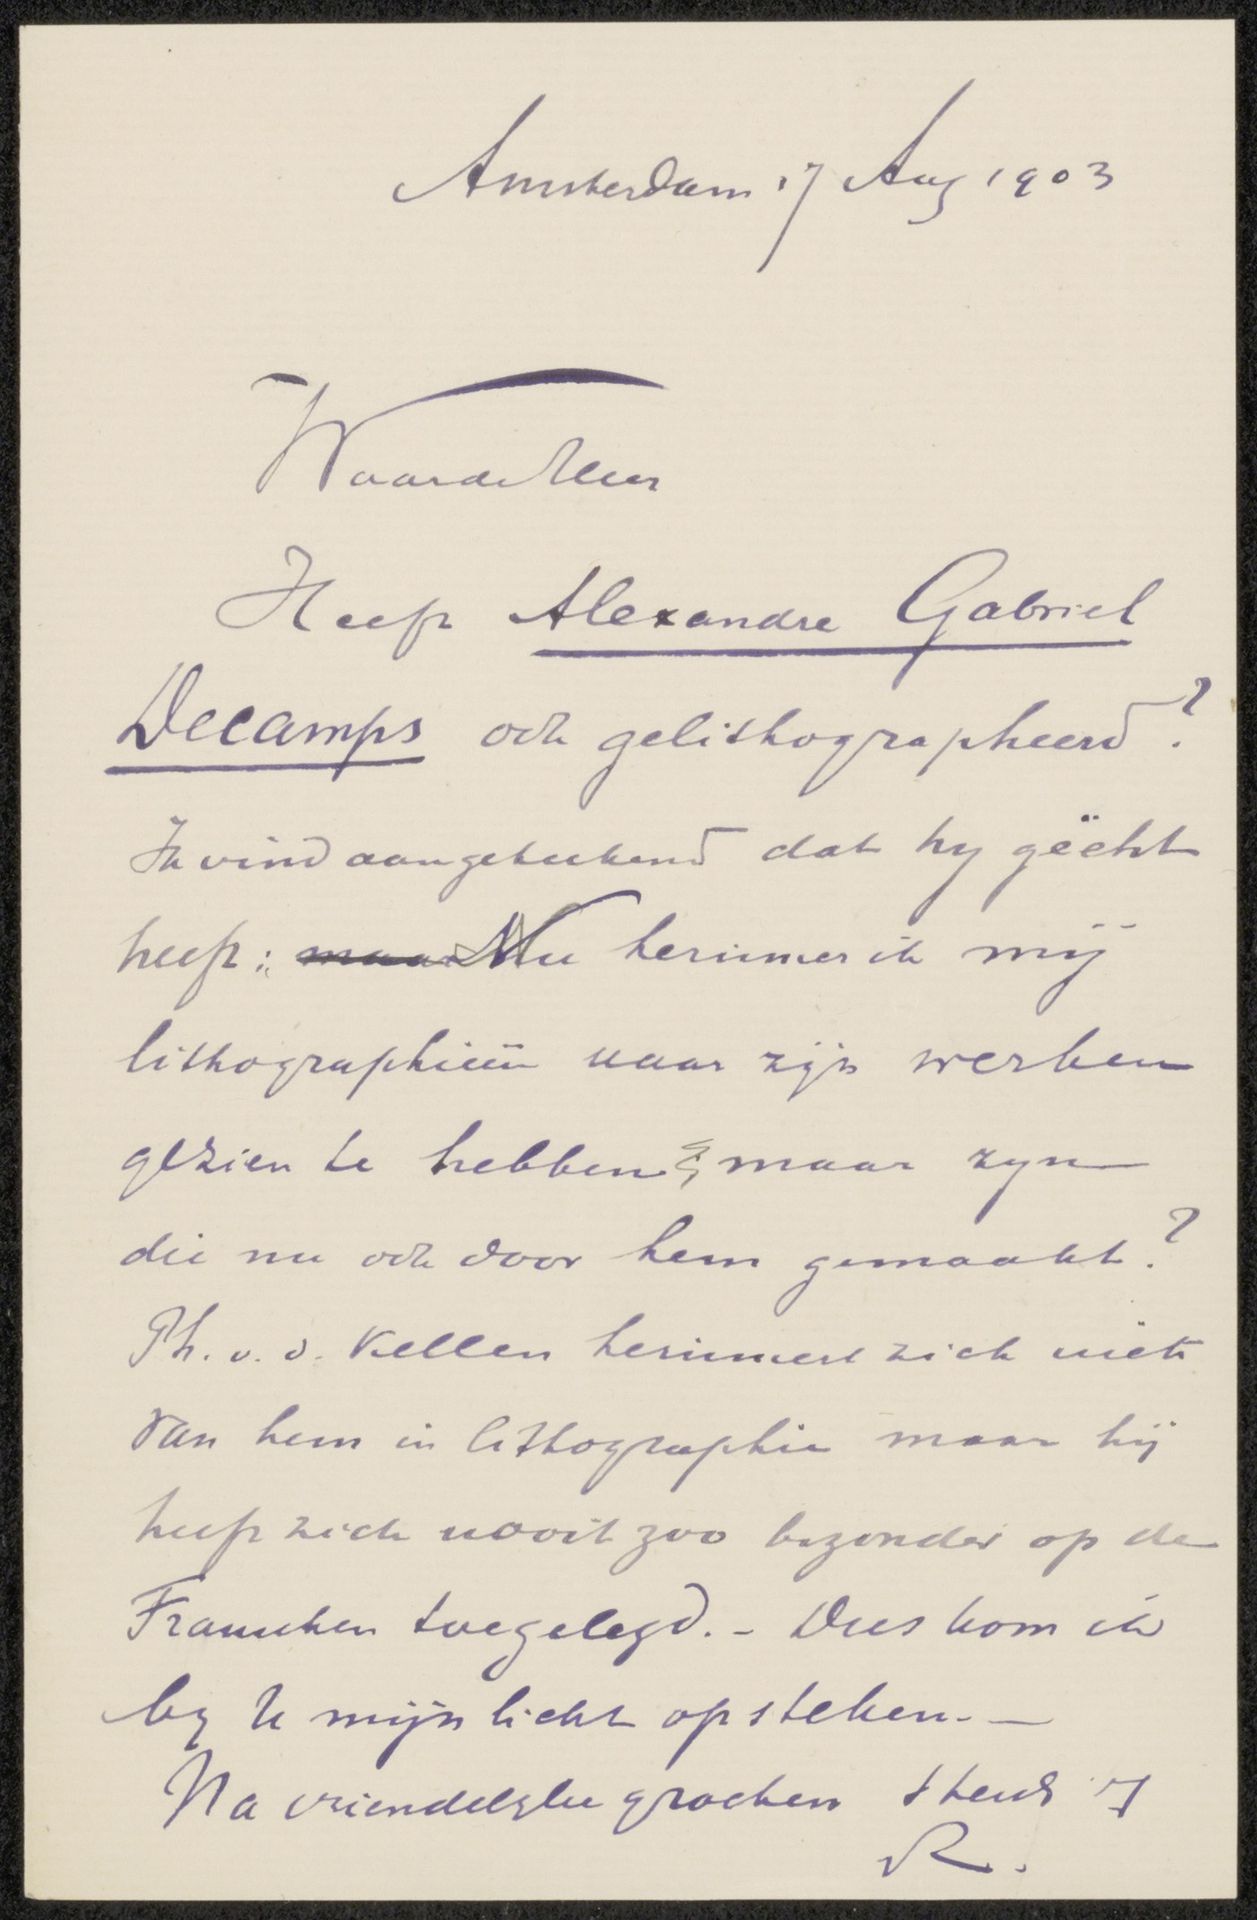 Amsterdam 17 Aug 1903
Waarde Heer
Heeft Alexandre Gabriel
Decamps ook gelithographeerd?
Ik vind aangeteekend dat hy geëtst
heeft; maar Nu herinner ik mij
lithographieën naar zijn werken
gezien te hebben; maar zyn
die nu ook door hem gemaakt?
Ph. v. d. Kellen herinnert zich niets
van hem in lithographie maar hij
heeft zich nooit zoo bezonder op de
Franschen toegelegd. - Dus kom ik
by U mijn licht opsteken. -
Na vriendelyke groeten steeds
R.